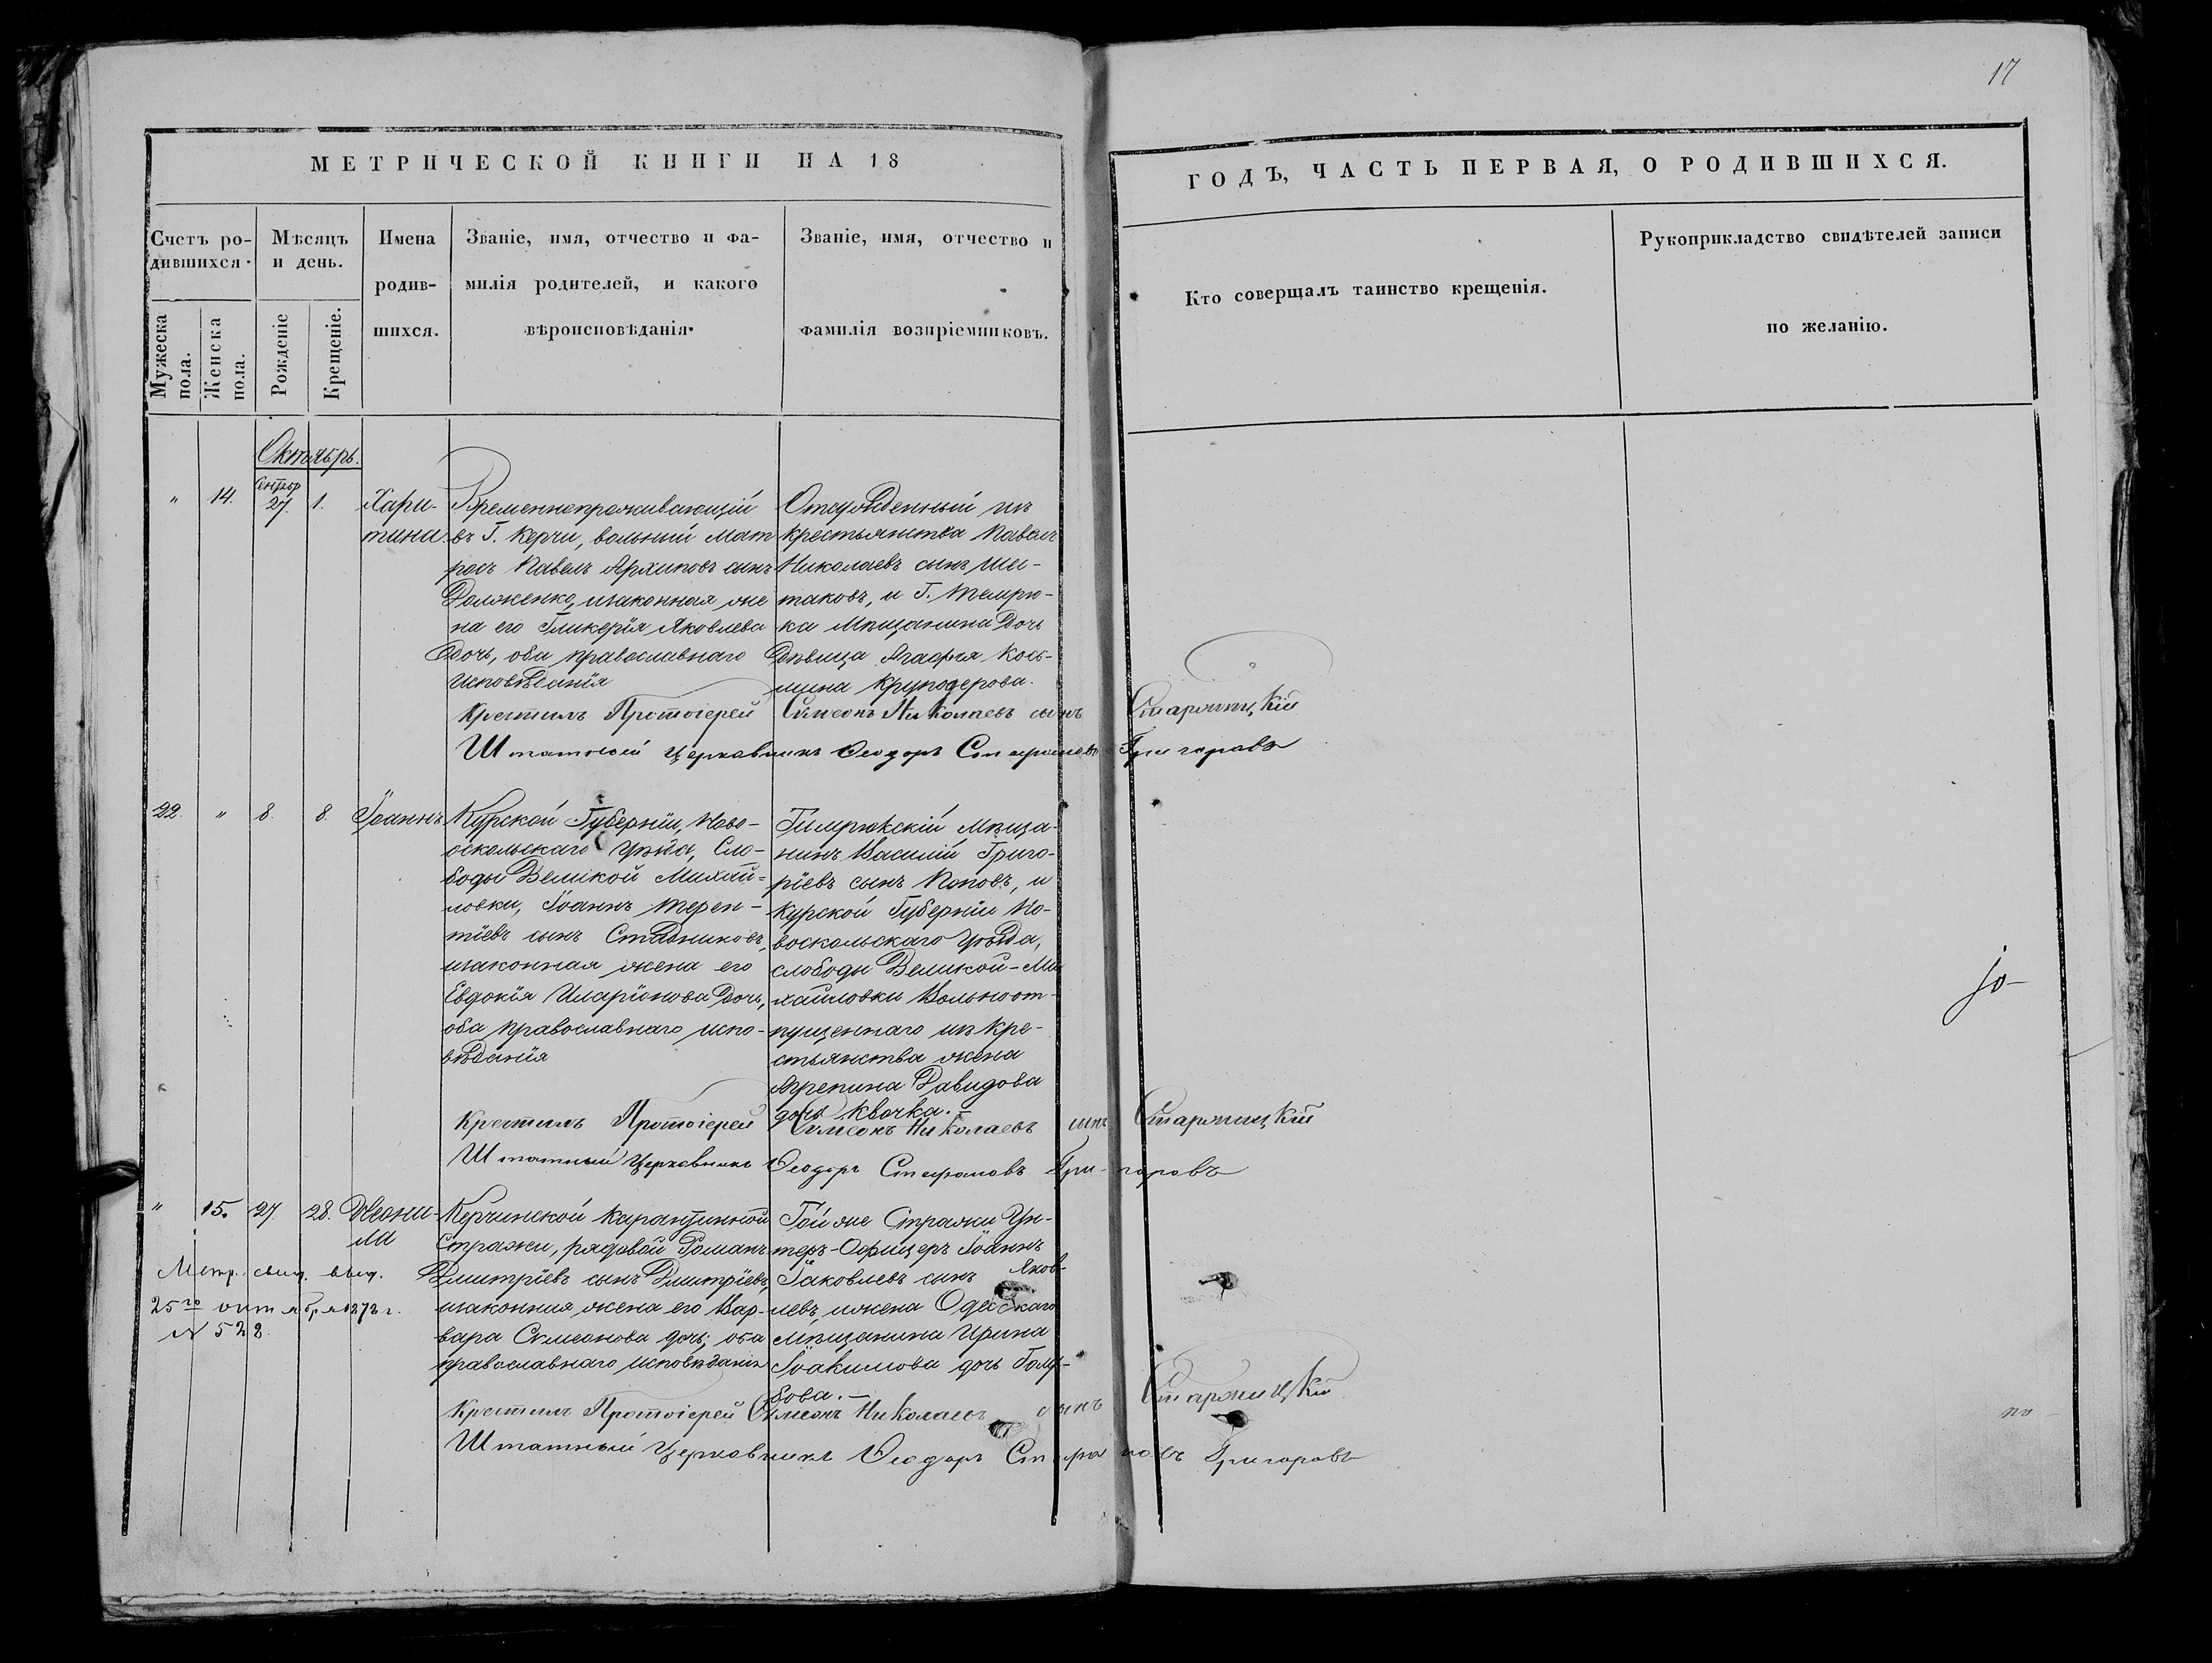 17
МЕТРИЧЕСКОЙ КНИГИ НА 18
ГОДЪ, ЧАСТЬ ПЕРВАЯ, О РОДИВШИХСЯ.
Счетъ ро-
дившихся.
Мужеска пола.
Женска пола.
Мѣсяцъ
и день.
Рожденіе
Крещеніе.
Имена
родив-
шихся.
Званіе, имя, отчество и фа-
милія родителей, и какого
вѣроисповѣданія.
Званіе, имя, отчество и
фамилія воспріемниковъ.
Кто совершалъ таинство крещенія.
Рукоприкладство свидѣтелей записи
по желанію.
Октябрь.
" 14. Сентяб 27. 1.
Хари-
тина.
Временнопроживающій
въ Г. Керчи, вольный мат
росъ Павелъ Архиповъ сынъ
Долженко, изаконная же
на его Гликерія Яковлева
дочь, оба православнаго
исповѣданія
крестьянства Павелъ
Николаевъ сынъ Ше-
таковъ, и Г. Темрю-
ка Мѣщанина дочь
Дѣвица Агафія Кось-
мина
Крестилъ Протоіерей Сѵмеонъ Николаевъ сынъ Старжицкій
Штатный Церковникъ Ѳеодоръ Стефановъ Григоровъ
22. " 8. 8. Іоаннъ
Курской Губерніи, Ново-
оскольскаго уѣзда, Сло-
боды Великой Михай-
ловки, Іоаннъ Терен-
тіевъ сынъ Стадниковъ,
изаконная жена его
Евдокія Иларіонова дочь,
оба православнаго испо-
вѣданія
Темрюкскій Мѣща-
нинъ Василій Григо-
ріевъ сынъ Поповъ, и
Курской Губерніи Но-
воскольскаго уѣзда,
слободы Великой-Ми
хайловки Вольноот-
пущеннаго изъ кре-
стьянства жена
Агрепина Давидова
дочь Квочка.-
Крестилъ Протоіерей Сѵмеонъ Николаевъ сынъ Старжицкій
Штатный Церковникъ Ѳеодоръ Стефановъ Григоровъ
" 15. 27. 28. Неони-
ла
Метр. свид. выд.
25го октября 1872 г.
N 522.
Керчинской Карантинной
Стражи, рядовой Романъ
Дмитріевъ сынъ Дмитріевъ,
изаконная жена его Вар-
вара Сѵмеонова дочь; оба
православнаго исповѣданія
Той же Стражи Ун-
теръ-Офицеръ Іоаннъ
Іаковлевъ сынъ Яков-
левъ, ижена Одесскаго
Мѣщанина Ирина
Іоакимова дочь Голу-
бова.-
Крестилъ Протоіерей Сѵмеонъ Николаевъ сынъ Старжицкій
Штатный Церковникъ Ѳеодоръ Стефановъ Григоровъ
по